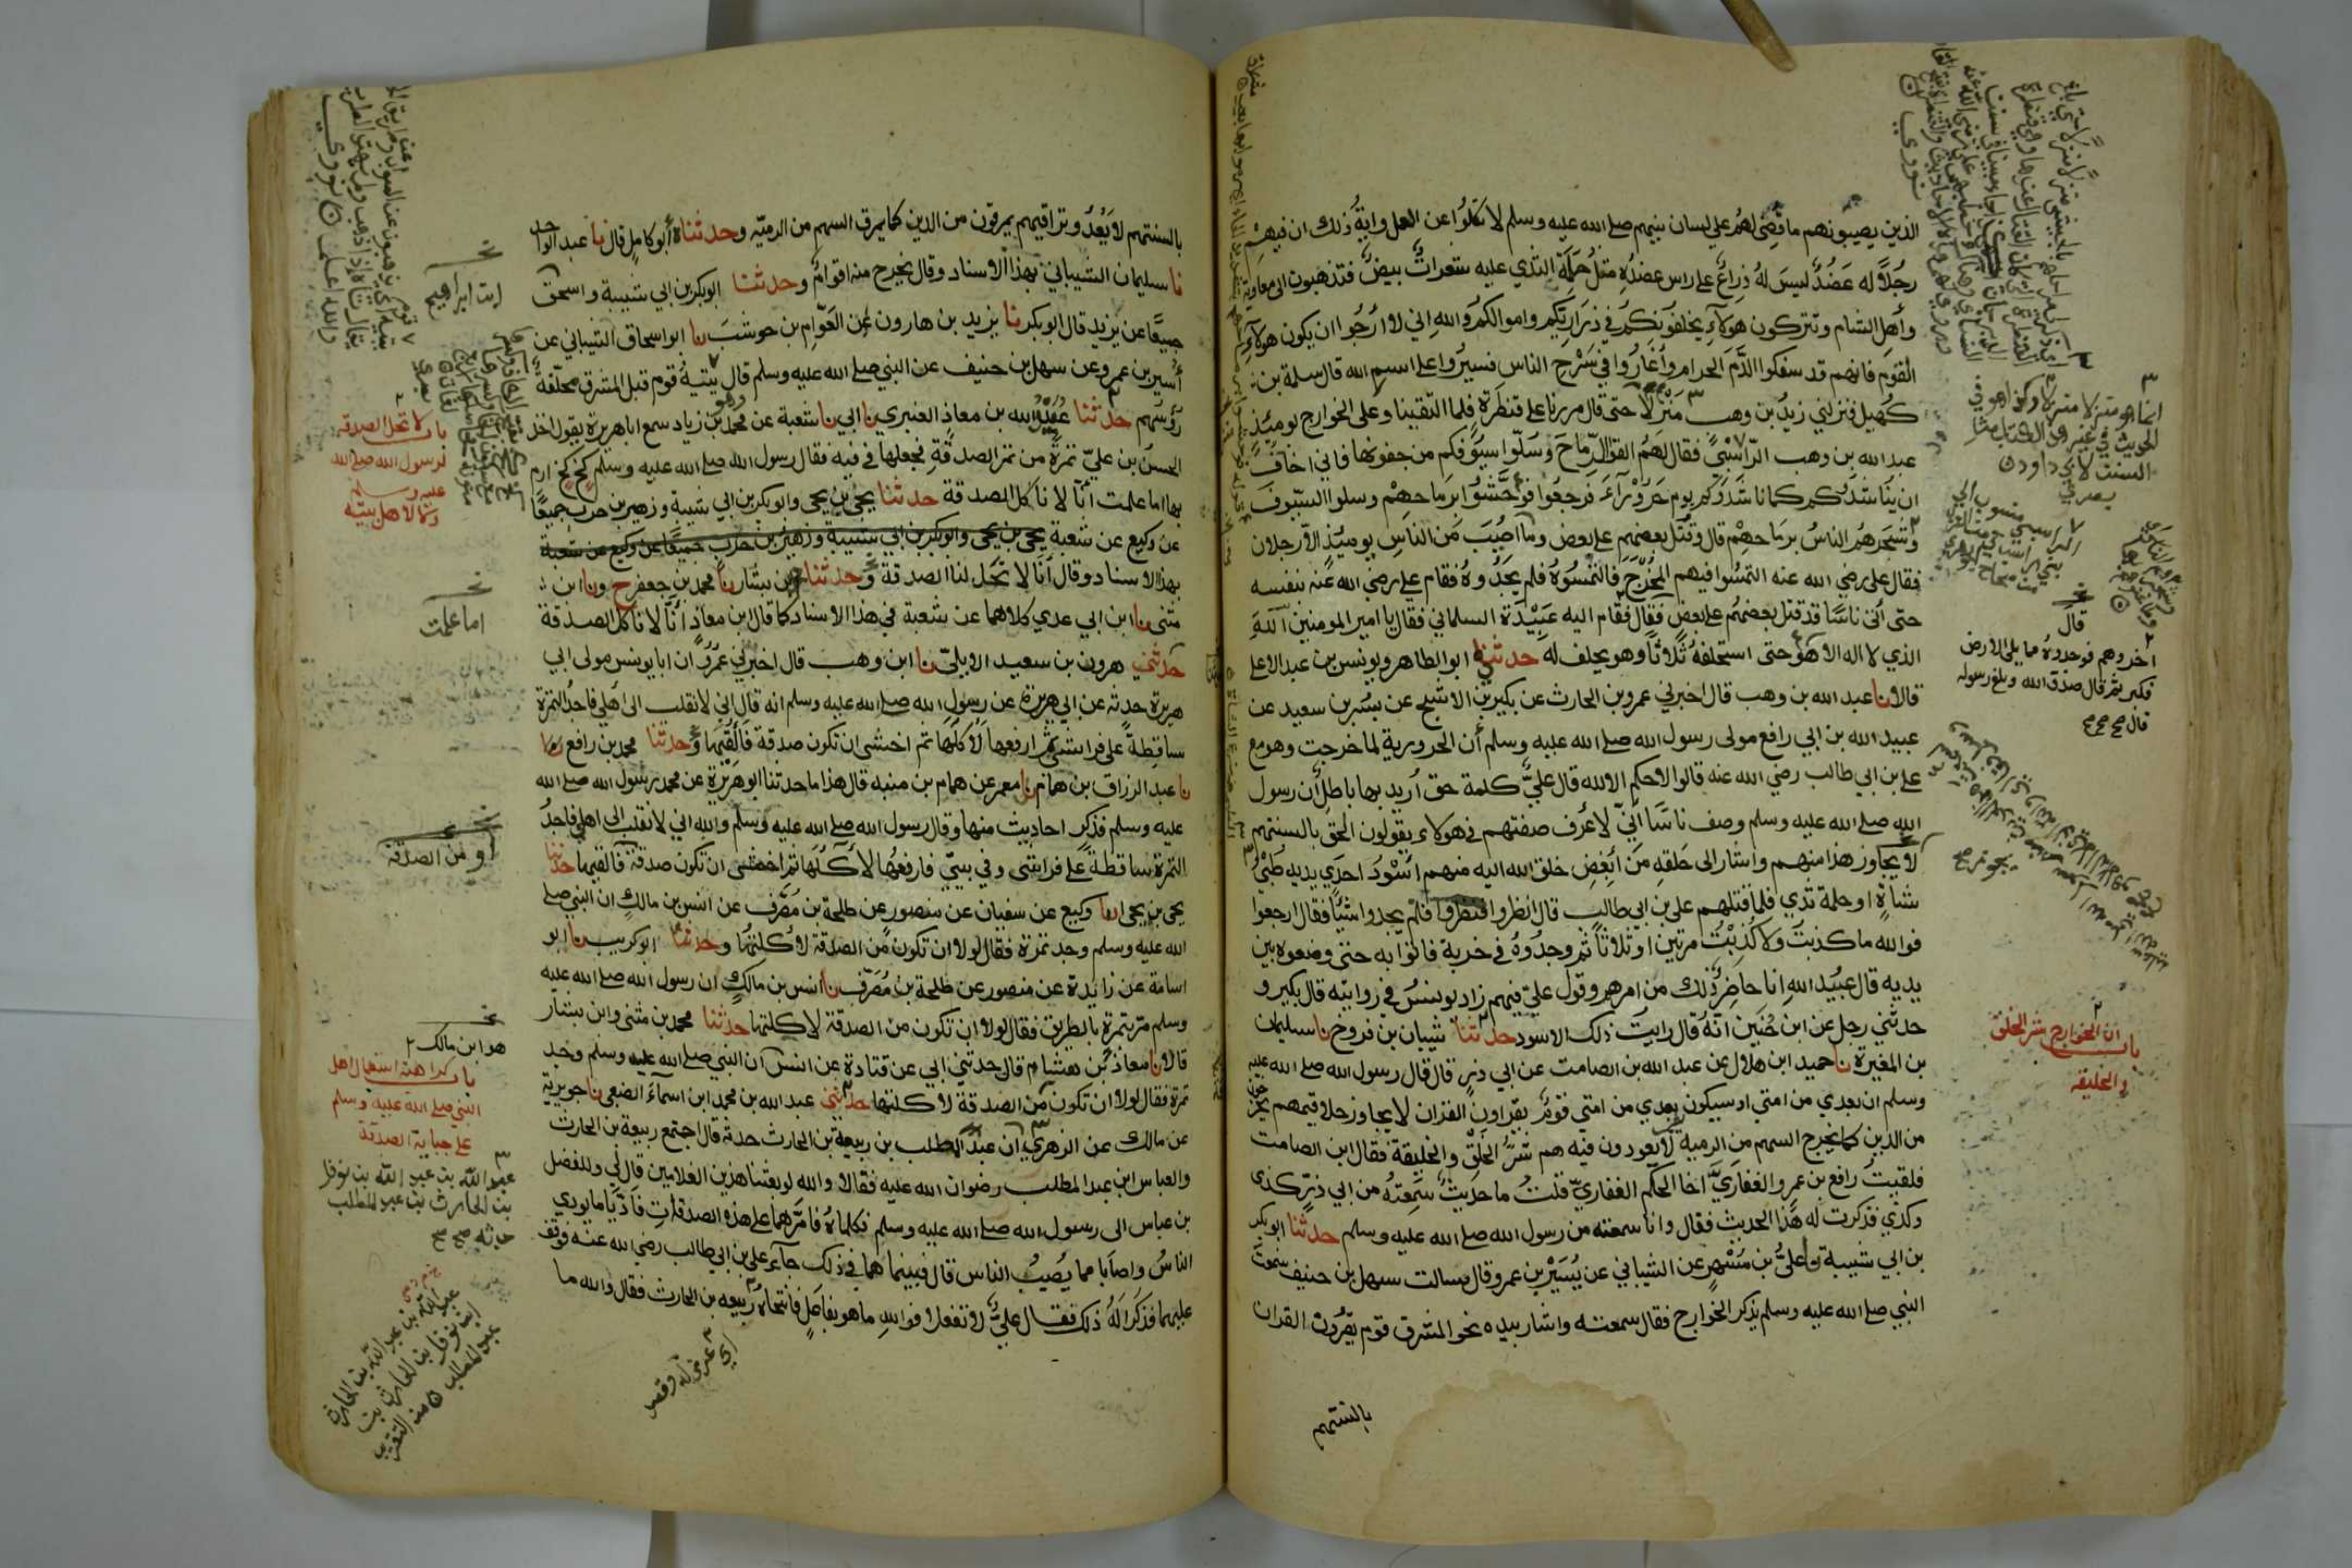 الذين يصيبونهم ما قضى لهم على لسان نبيهم صلى الله عليه وسلم لا تكلوا عن العمل واية ذلك ان فيهم
رجلا له عضد ليس له ذراع على راس عضده مثل حلمة الثدي عليه شعرات بيض فتذهبون الى معاوية
وأهل الشام وتتركون هولاء يخلفونكم في ذراريكم واموالكم والله اني لا ارجوا ان يكون هولاء
القوم فانهم قد سفكوا الدم الحرام وأغاروا في سرح الناس فسيروا على اسم الله قال سلمة بن
كهيل فنزلني زيد بن وهب منزلا حتى قال مررنا على قنطرة فلما التقينا وعلى الخوارج يومئذ
عبد الله بن وهب الراسبي فقال لهم القوا الرماح وسلوا سيوفكم من جفونها فاني اخاف
ان يناشدوكم كما ناشدوكم يوم حروراء فرجعوا فوحشوا برماحهم وسلوا السيوف
وشجرهم الناس برماحهم قال وقتل بعضهم على بعض وما اصيب من الناس يومئذ الا رجلان
فقال على رضي الله عنه التمسوا فيهم المخدج فالتمسوه فلم يجدوه فقام علي رضي الله عنه بنفسه
حتى أتى ناسا قد قتل بعضهم على بعض فقال فقام اليه عبيدة السلماني فقال يا امير المومنين آلله
الذي لا اله الا هو حتى استحلفه ثلاثا وهو يحلف له حدثني ابو الطاهر ويونس بن عبد الاعلى
قالا نا عبد الله بن وهب قال اخبرني عمرو بن الحارث عن بكير بن الاشج عن بسر بن سعيد عن
عبيد الله بن ابي رافع مولى رسول الله صلى الله عليه وسلم أن الحرورية لما خرجت وهو مع
على بن ابي طالب رضي الله عنه قالوا لا حكم الا لله قال علي كلمة حق أريد بها باطل أن رسول
الله صلى الله عليه وسلم وصف ناسا اني لأعرف صفتهم في هولاء يقولون الحق بالسنتهم
لا يجاوز هذا منهم واشار الى حلقه من أبغض خلق الله اليه منهم أسود احدي يديه طبي
شاة او حلمة ثدي فلما قتلهم على بن ابي طالب قال انظروا فنظروا فلم يجدوا شيئا فقال ارجعوا
فوالله ما كذبت ولا كذبت مرتين او ثلاثا ثم وجدوه في خربة فاتوا به حتى وضعوه بين
يديه قال عبيد الله انا حاضر ذلك من امرهم وقول علي فيهم زاد يونس في روايته قال بكير و
حدثني رجل عن ابن حنين انه قال رايت ذلك الاسود حدثنا شيبان بن فروخ نا سليمان
بن المغيرة نا حميد ابن هلال عن عبد الله بن الصامت عن ابي ذر قال قال رسول الله صلى الله عليه
وسلم ان بعدي من امتي او سيكون بعدي من امتي قوم يقراون القران لا يجاوز حلاقيمهم يخرجون
من الدين كما يخرج السهم من الرمية لا يعودون فيه هم شر الخلق والخليقة فقال ابن الصامت
فلقيت رافع بن عمرو الغفاري اخا الحكم الغفاري قلت ما حديث سمعته من ابي ذر كذى
وكذي فذكرت له هذا الحديث فقال وانا سمعته من رسول الله صلى الله عليه وسلم حدثنا ابو بكر
بن ابي شيبة نا علي بن مسهر عن الشيباني عن يسير بن عمرو قال سالت سهل بن حنيف سمعت
النبي صلى الله عليه وسلم يذكر الخوارج فقال سمعته واشار بيده نحو المشرق قوم يقرون القران
بالسنتهم
قال
اخروهم فوجدوه مما يلى الارض
فكبر ثم قال صدق الله وبلغ رسوله
قال صح صح صح
باب ان الخوارج شر الخلق
والخليقة
بالسنتهم لا يعدوا تراقيهم يمرقون من الدين كما يمرق السهم من الرمية وحدثناه أبو كامل قال نا عبد الواحد
نا سليمان الشيباني بهذا الاسناد وقال يخرج منه اقوام وحدثنا ابو بكر بن ابي شيبة واسحق
جميعا عن يزيد قال ابو بكر نا يزيد بن هارون عن العوام بن حوشب نا ابو اسحاق الشيباني عن
أسير بن عمرو عن سهل بن حنيف عن النبي صلى الله عليه وسلم قال يتيه قوم قبل المشرق محلقة
رؤسهم حدثنا عبيد الله بن معاذ العنبري نا ابي نا شعبة عن محمد وهو بن زياد سمع ابا هريرة يقول اخذ
الحسن بن علي تمرة من تمر الصدقة فجعلها في فيه فقال رسول الله صلى الله عليه وسلم كخ كخ ارم
بها اما علمت أنا لا ناكل الصدقة حدثنا يحيى بن يحيى وابو بكر بن ابي شيبة وزهير بن حرب جميعا
عن وكيع عن شعبة يحيى بن يحيى وابو بكر بن ابي شيبة وزهير بن حرب جميعا عن وكيع عن شعبة
بهذا الاسناد وقال أنا لا تحل لنا الصدقة وحدثنا محمد بن بشار نا محمد بن جعفر ح ونا ابن
مثنى نا ابن ابي عدي كلاهما عن شعبة في هذا الاسناد كما قال ابن معاذ أنا لا ناكل الصدقة
حدثني هرون بن سعيد الايلي نا ابن وهب قال اخبرني عمرو ان ابا يونس مولى ابي
هريرة حدثه عن ابي هريرة عن رسول الله صلى الله عليه وسلم انه قال اني لانقلب الى اهلي فاجد التمرة
ساقطة على فراشي ثم ارفعها لآكلها ثم اخشى ان تكون صدقة فالقيها وحدثنا محمد بن رافع
نا عبد الرزاق بن همام نا معمر عن همام بن منبه قال هذا ما حدثنا ابو هريرة عن محمد رسول الله صلى الله
عليه وسلم فذكر احاديث منها وقال رسول الله صلى الله عليه وسلم والله اني لانقلب الى اهلي فاجد
التمرة ساقطة على فراشي وفي بيتي فارفعها لآكلها ثم اخشى ان تكون صدقة فالقيها حدثنا
يحيى بن يحيى انا وكيع عن سفيان عن منصور عن طلحة بن مصرف عن انس بن مالك ان النبي صلى
الله عليه وسلم وجد تمرة فقال لولا ان تكون من الصدقة لاكلتها وحدثنا ابو كريب نا ابو
اسامة عن زائدة عن منصور عن طلحة بن مصرف نا انس بن مالك ان رسول الله صلى الله عليه
وسلم مر بتمرة بالطريق فقال لولا ان تكون من الصدقة لاكلتها حدثنا محمد بن مثنى وابن بشار
قالا نا معاذ بن هشام قال حدثني ابي عن قتادة عن انس ان النبي صلى الله عليه وسلم وجد
تمرة فقال لولا ان تكون من الصدقة لاكلتها حدثني عبد الله بن محمد ابن اسماء الضبعي نا جويرية
عن مالك عن الزهري ان عبد المطلب بن ربيعة بن الحارث حدثه قال اجتمع ربيعة بن الحارث
والعباس ابن عبد المطلب رضوان الله عليه فقالا والله لو بعثنا هذين الغلامين قال لي وللفضل
بن عباس الى رسول الله صلى الله عليه وسلم فكلماه فامرهما على هذه الصدقات فاديا ما يودي
الناس واصابا مما يصيب الناس قال فبينما هما في ذلك جاء علي بن ابي طالب رضي الله عنه فوقف
عليهما فذكرا له ذلك فقال علي لا تفعلا فوالله ما هو بفاعل فانتحاه ربيعه بن الحارث فقال والله ما
ابن ابراهيم
باب لا تحل الصدقة
لرسول الله صلى الله
عليه وسلم
ولا لاهل بيته
اما علمت
أو من الصدقة
هو ابن مالك
باب كراهة استعمال اهل
النبي صلى الله عليه وسلم
على جباية الصدقة
عبد الله بن عبد الله بن نوفل
بن الحارث بن عبد المطلب
حدثه صح صح